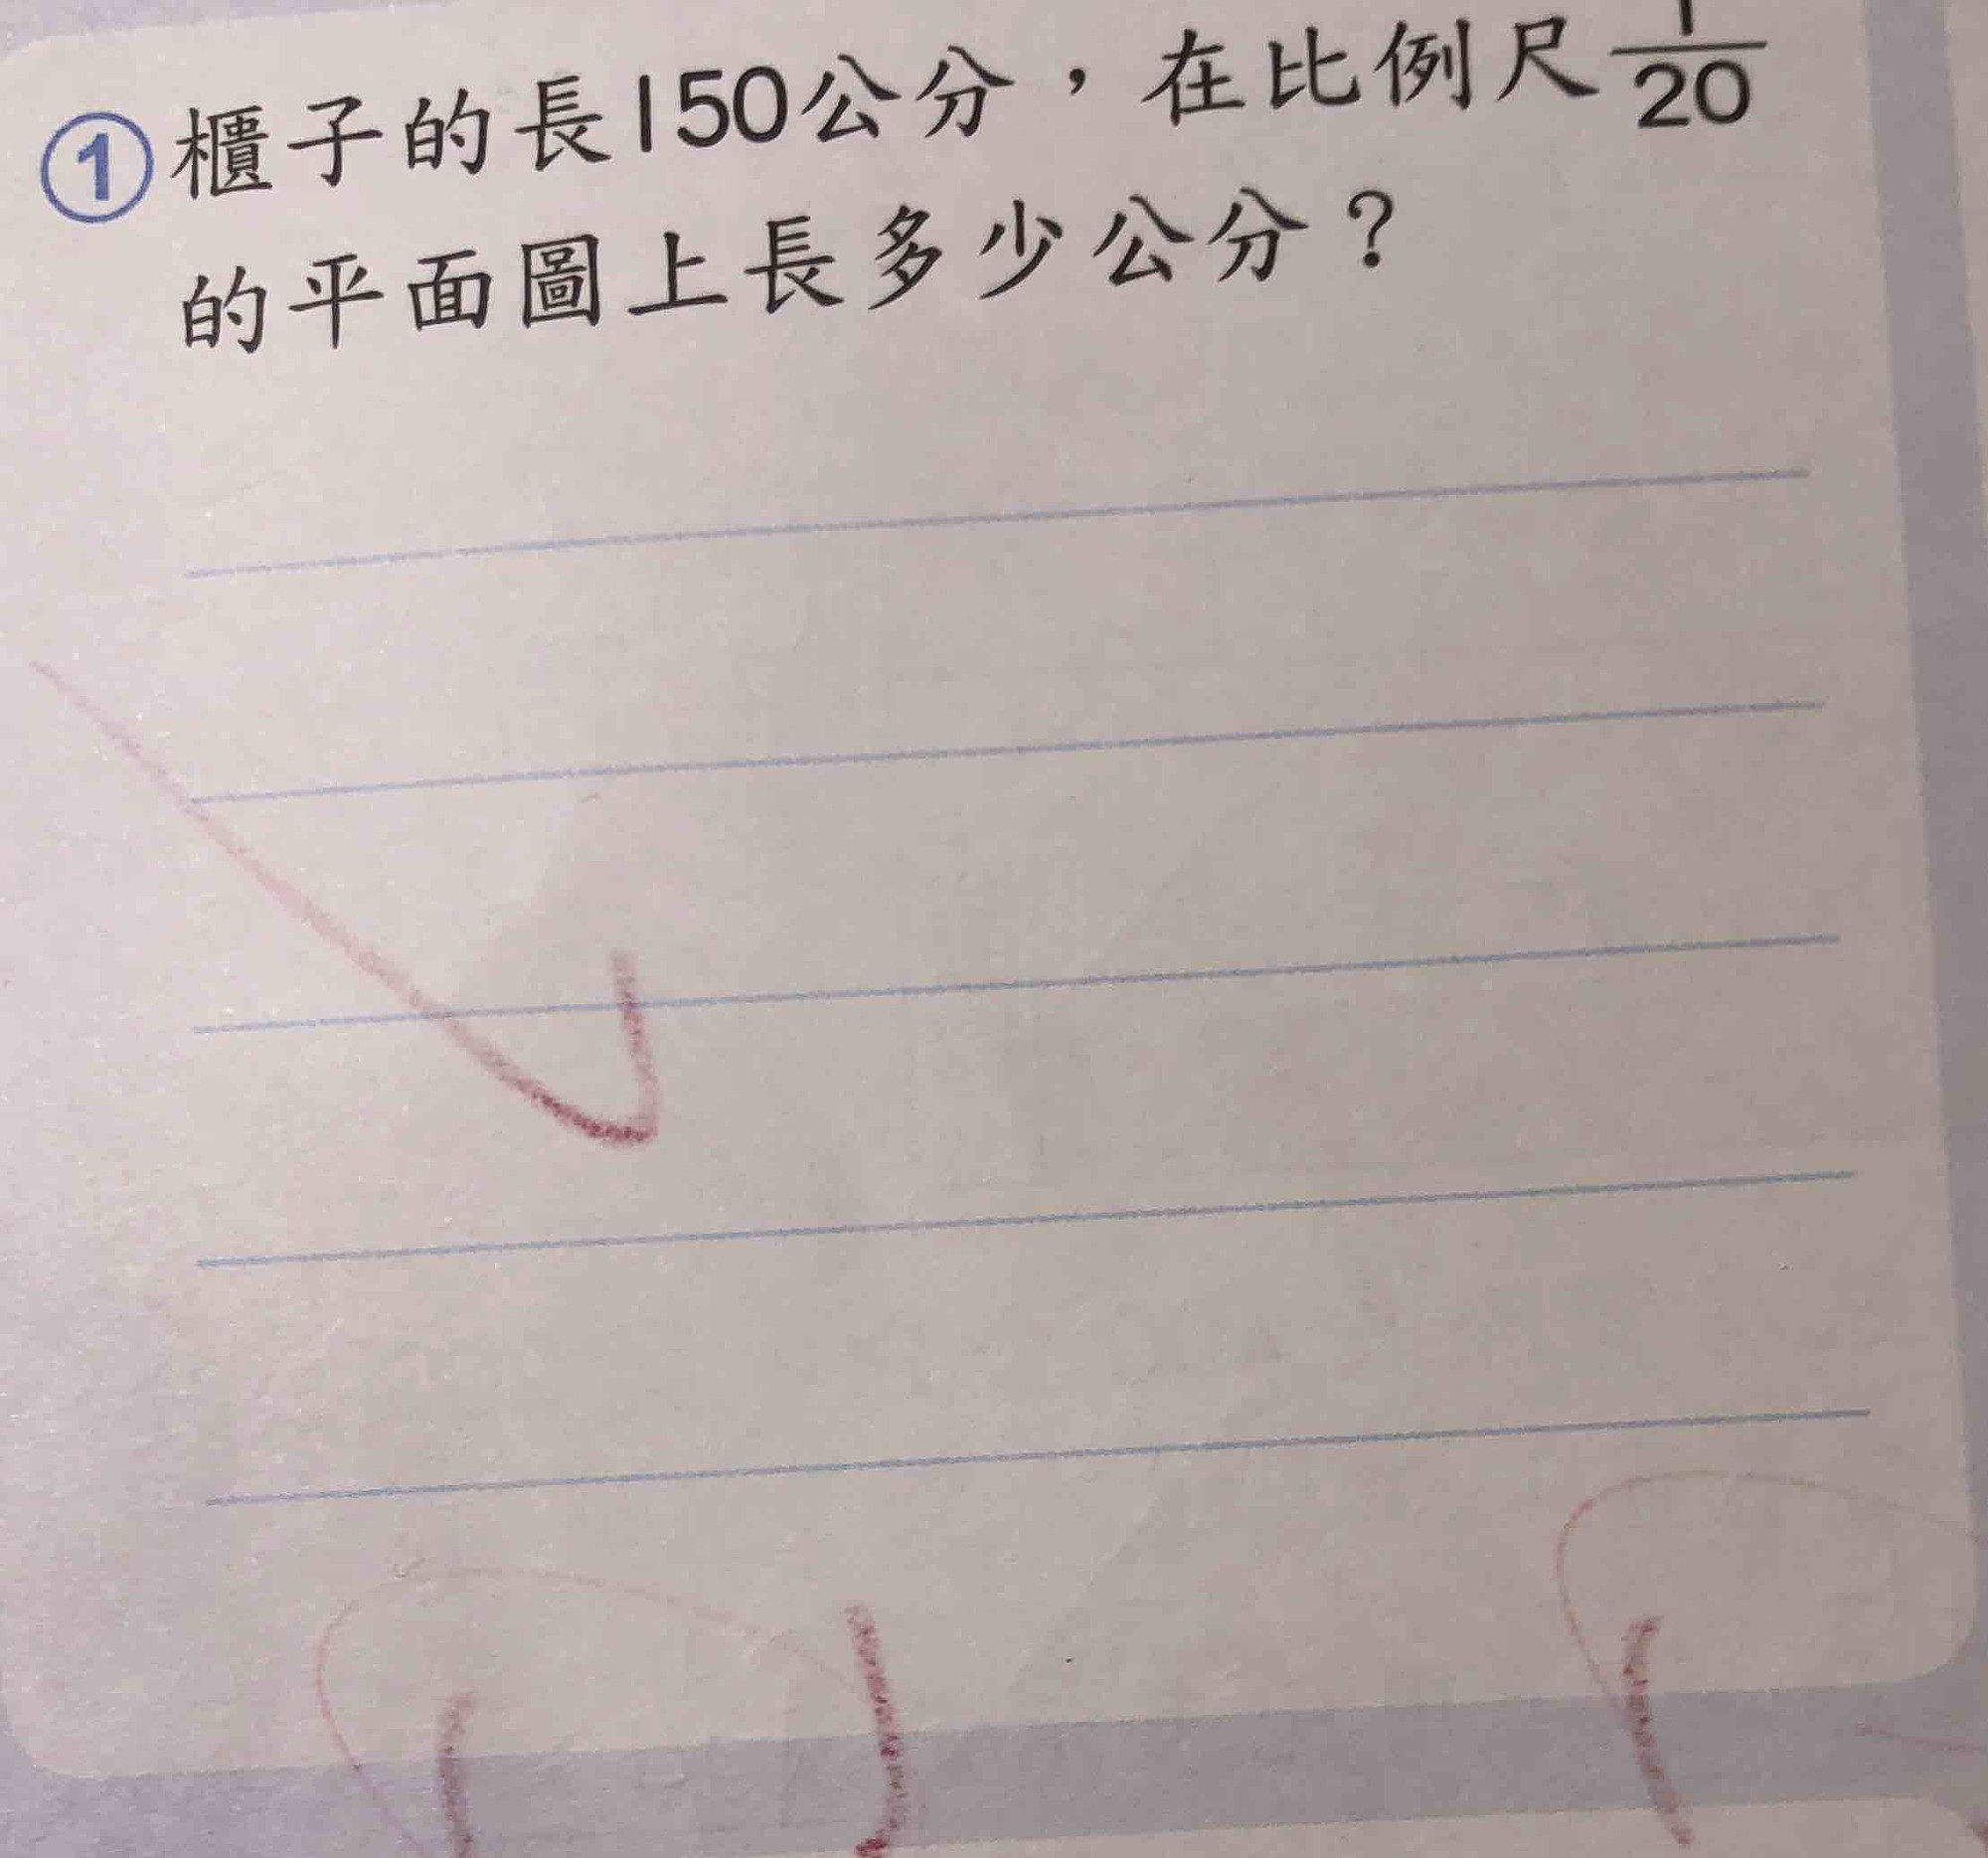 ①櫃子的長150公分，在比例尺1/20
的平面圖上長多少公分？